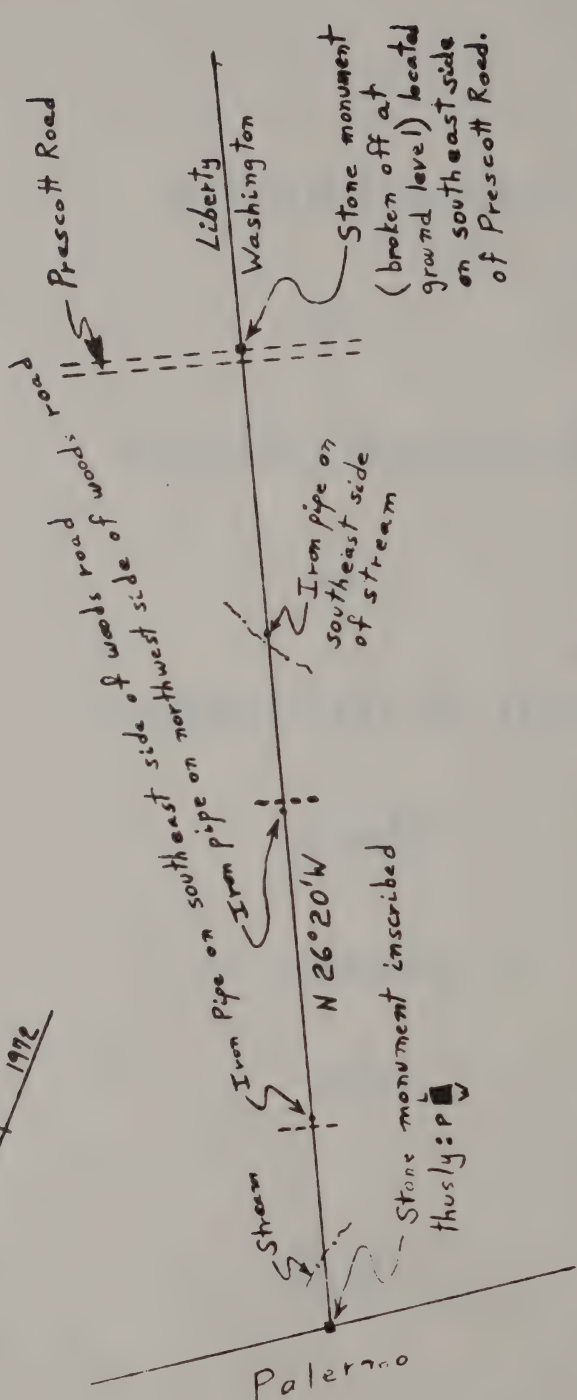 Prescott Road
Liberty
Washington
Stone monument
(broken off at
ground level) located
on southeast side
of Prescott Road.
Iron pipe on
southeast side
of stream
Iron Pipe on southeast side of woods road
Iron pipe on northwest side of woods road
N 26°20'W
Stream
Stone monument inscribed
thusly: P L W
Palermo
1972